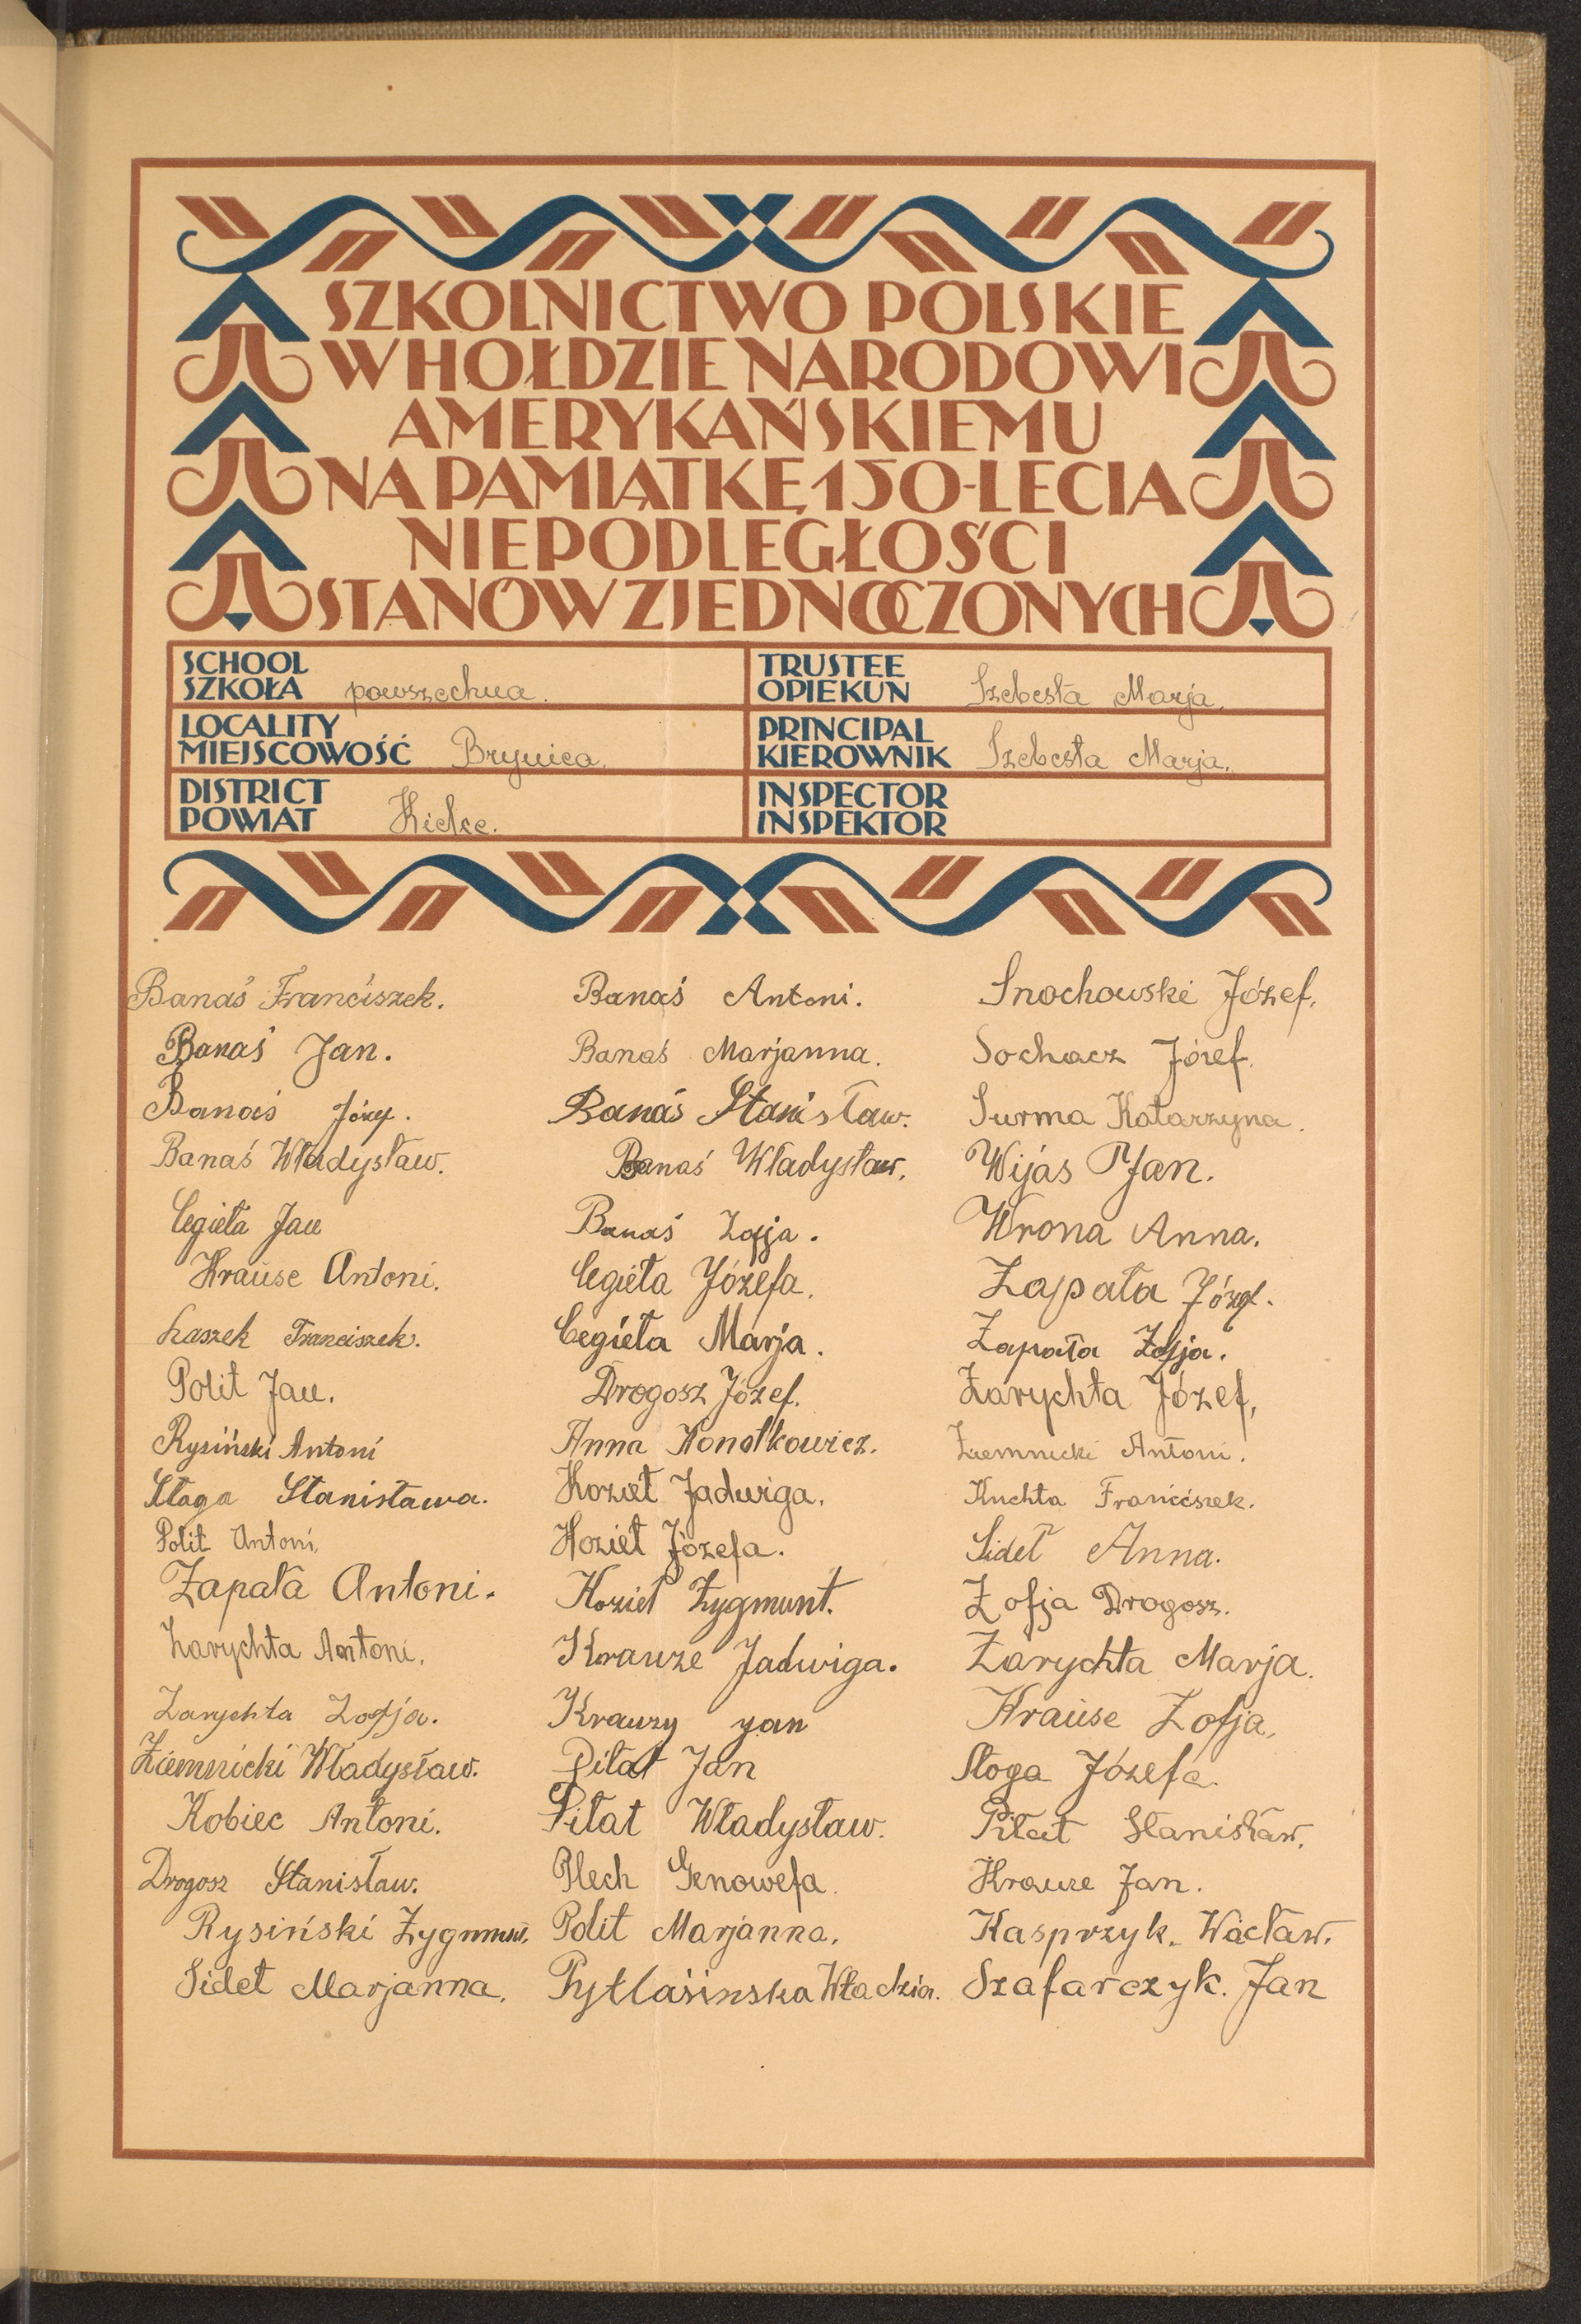 SZKOLNICTWO POLSKIE
W HOŁDZIE NARODOWI
AMERYKAŃSKIEMU
NA PAMIĄTKĘ 150-LECIA
NIEPODLEGŁOŚCI
STANÓW ZJEDNOCZONYCH
SCHOOL
SZKOŁA powszechna.
TRUSTEE
OPIEKUN Szebesta Marja.
LOCALITY
MIEJSCOWOŚĆ Brynica.
PRINCIPAL
KIEROWNIK Szebesta Marja.
DISTRICT
POWIAT Kielce.
INSPECTOR
INSPEKTOR
Banaś Franciszek.
Banaś Jan.
Banaś Józef.
Banaś Władysław.
Cegieła Jan
Krause Antoni.
Laszek Franciszek.
Polit Jan.
Rysiński Antoni
Słaga Stanisława.
Polit Antoni.
Zapała Antoni.
Zarychta Antoni.
Zarychta Zofja.
Ziemnicki Władysław.
Kobiec Antoni.
Drogosz Stanisław.
Rysiński Zygmunt.
Sideł Marjanna.
Banaś Antoni.
Banaś Marjanna.
Banaś Stanisław.
Banaś Władysław.
Banaś Zofja.
Cegieła Józefa.
Cegieła Marja.
Drogosz Józef.
Anna Konołkowicz.
Kozieł Jadwiga.
Kozieł Józefa.
Kozieł Zygmunt.
Krauze Jadwiga.
Krauzy Jan
Piłat Jan
Piłat Władysław.
Plech Genowefa.
Polit Marjanna.
Pytlasinska Władzia.
Snochowski Józef.
Sochacz Józef.
Surma Katarzyna.
Wijas Jan.
Wrona Anna.
Zapała Józef.
Zapała Zofja.
Zarychta Józef,
Ziemnicki Antoni.
Kuchta Franciszek.
Sideł Anna.
Zofja Drogosz.
Zarychta Marja.
Krause Zofja.
Słoga Józefa.
Piłat Stanisław.
Krauze Jan.
Kasprzyk. Wacław.
Szafarczyk. Jan